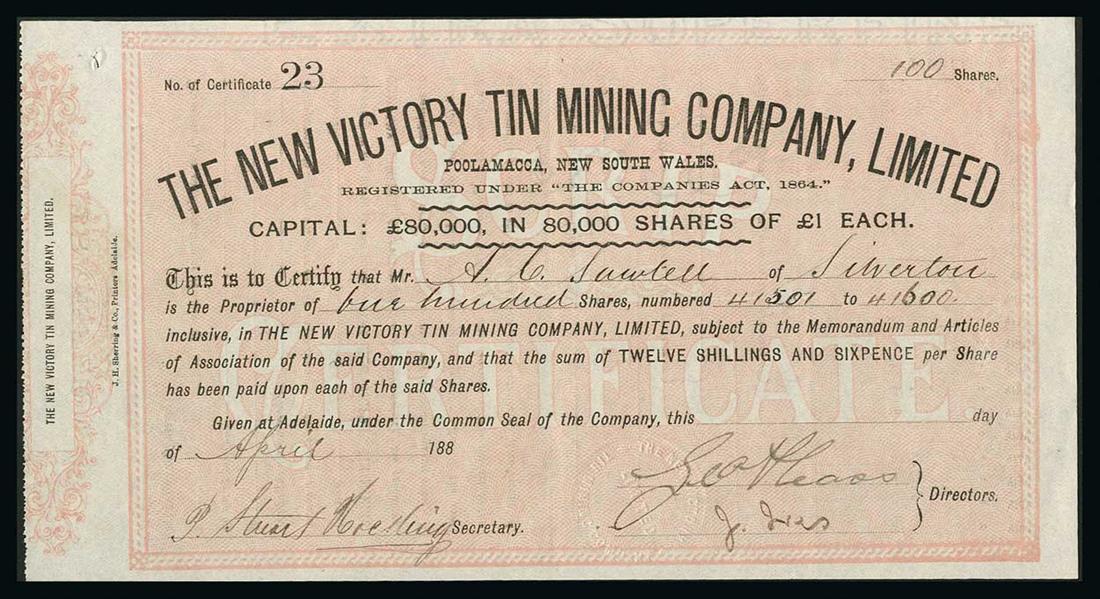 No. of Certificate 23
100 Shares.
THE NEW VICTORY TIN MINING COMPANY, LIMITED
POOLAMACCA, NEW SOUTH WALES.
REGISTERED UNDER "THE COMPANIES ACT, 1864."
CAPITAL: £80,000, IN 80,000 SHARES OF £1 EACH.
This is to Certify that Mr. A. C. Sawtell of Silverton
is the Proprietor of one hundred Shares, numbered 41501 to 41600.
inclusive, in THE NEW VICTORY TIN MINING COMPANY, LIMITED, subject to the Memorandum and Articles
of Association of the said Company, and that the sum of TWELVE SHILLINGS AND SIXPENCE per Share
has been paid upon each of the said Shares.
Given at Adelaide, under the Common Seal of the Company, this day
of April 188
Directors.
P. Stuart Secretary.
THE NEW VICTORY TIN MINING COMPANY, LIMITED.
J. H. Sherring & Co., Printers Adelaide.
SCRIP
CERTIFICATE